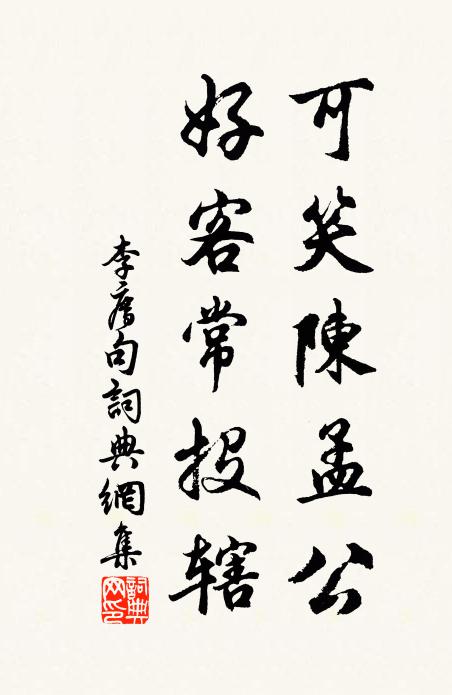 可笑陳孟公
好客常投辖
李句詞典網集
詞典網印